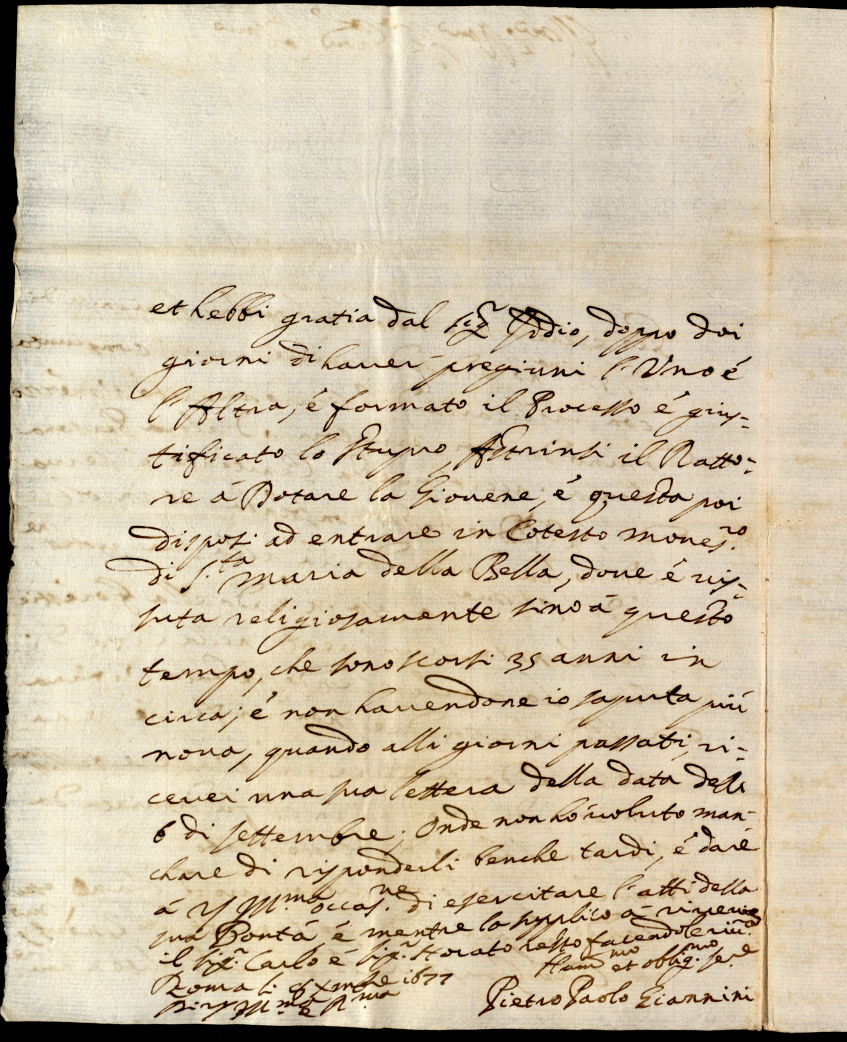 et hebbi gratia dal Sig.r Iddio, doppo doi
giorni di haver pregiuni l'Uno é
l'Altra, é formato il Processo é gius-
tificato lo stupro, Astrinsi il Ratto-
re á Dotare la Giovene, é questa poi
disposi ad entrare in Cotesto mones.ro
di S.ta Maria della Bella, dove é vis-
suta religiosamente sino á questo
tempo, che sono scorsi 35 anni in
circa; é non havendone io saputa piú
nova, quando alli giorni passati, ri-
cevei una sua lettera della data delli
6 di settembre; Onde non hó voluto man-
chare di risponderli benche tardi, é dare
á VS Ill.ma occas.ne di esercitare l'atti della
sua Bontá, é mentre la supplico á riverire
il Sig.r Carlo é Sig.r Horato resto facendole riv.a
Roma li Xmbre 1677
Di VS Ill.ma é R.ma
Hum.mo et oblig.mo ser.e
Pietro Paolo Giannini